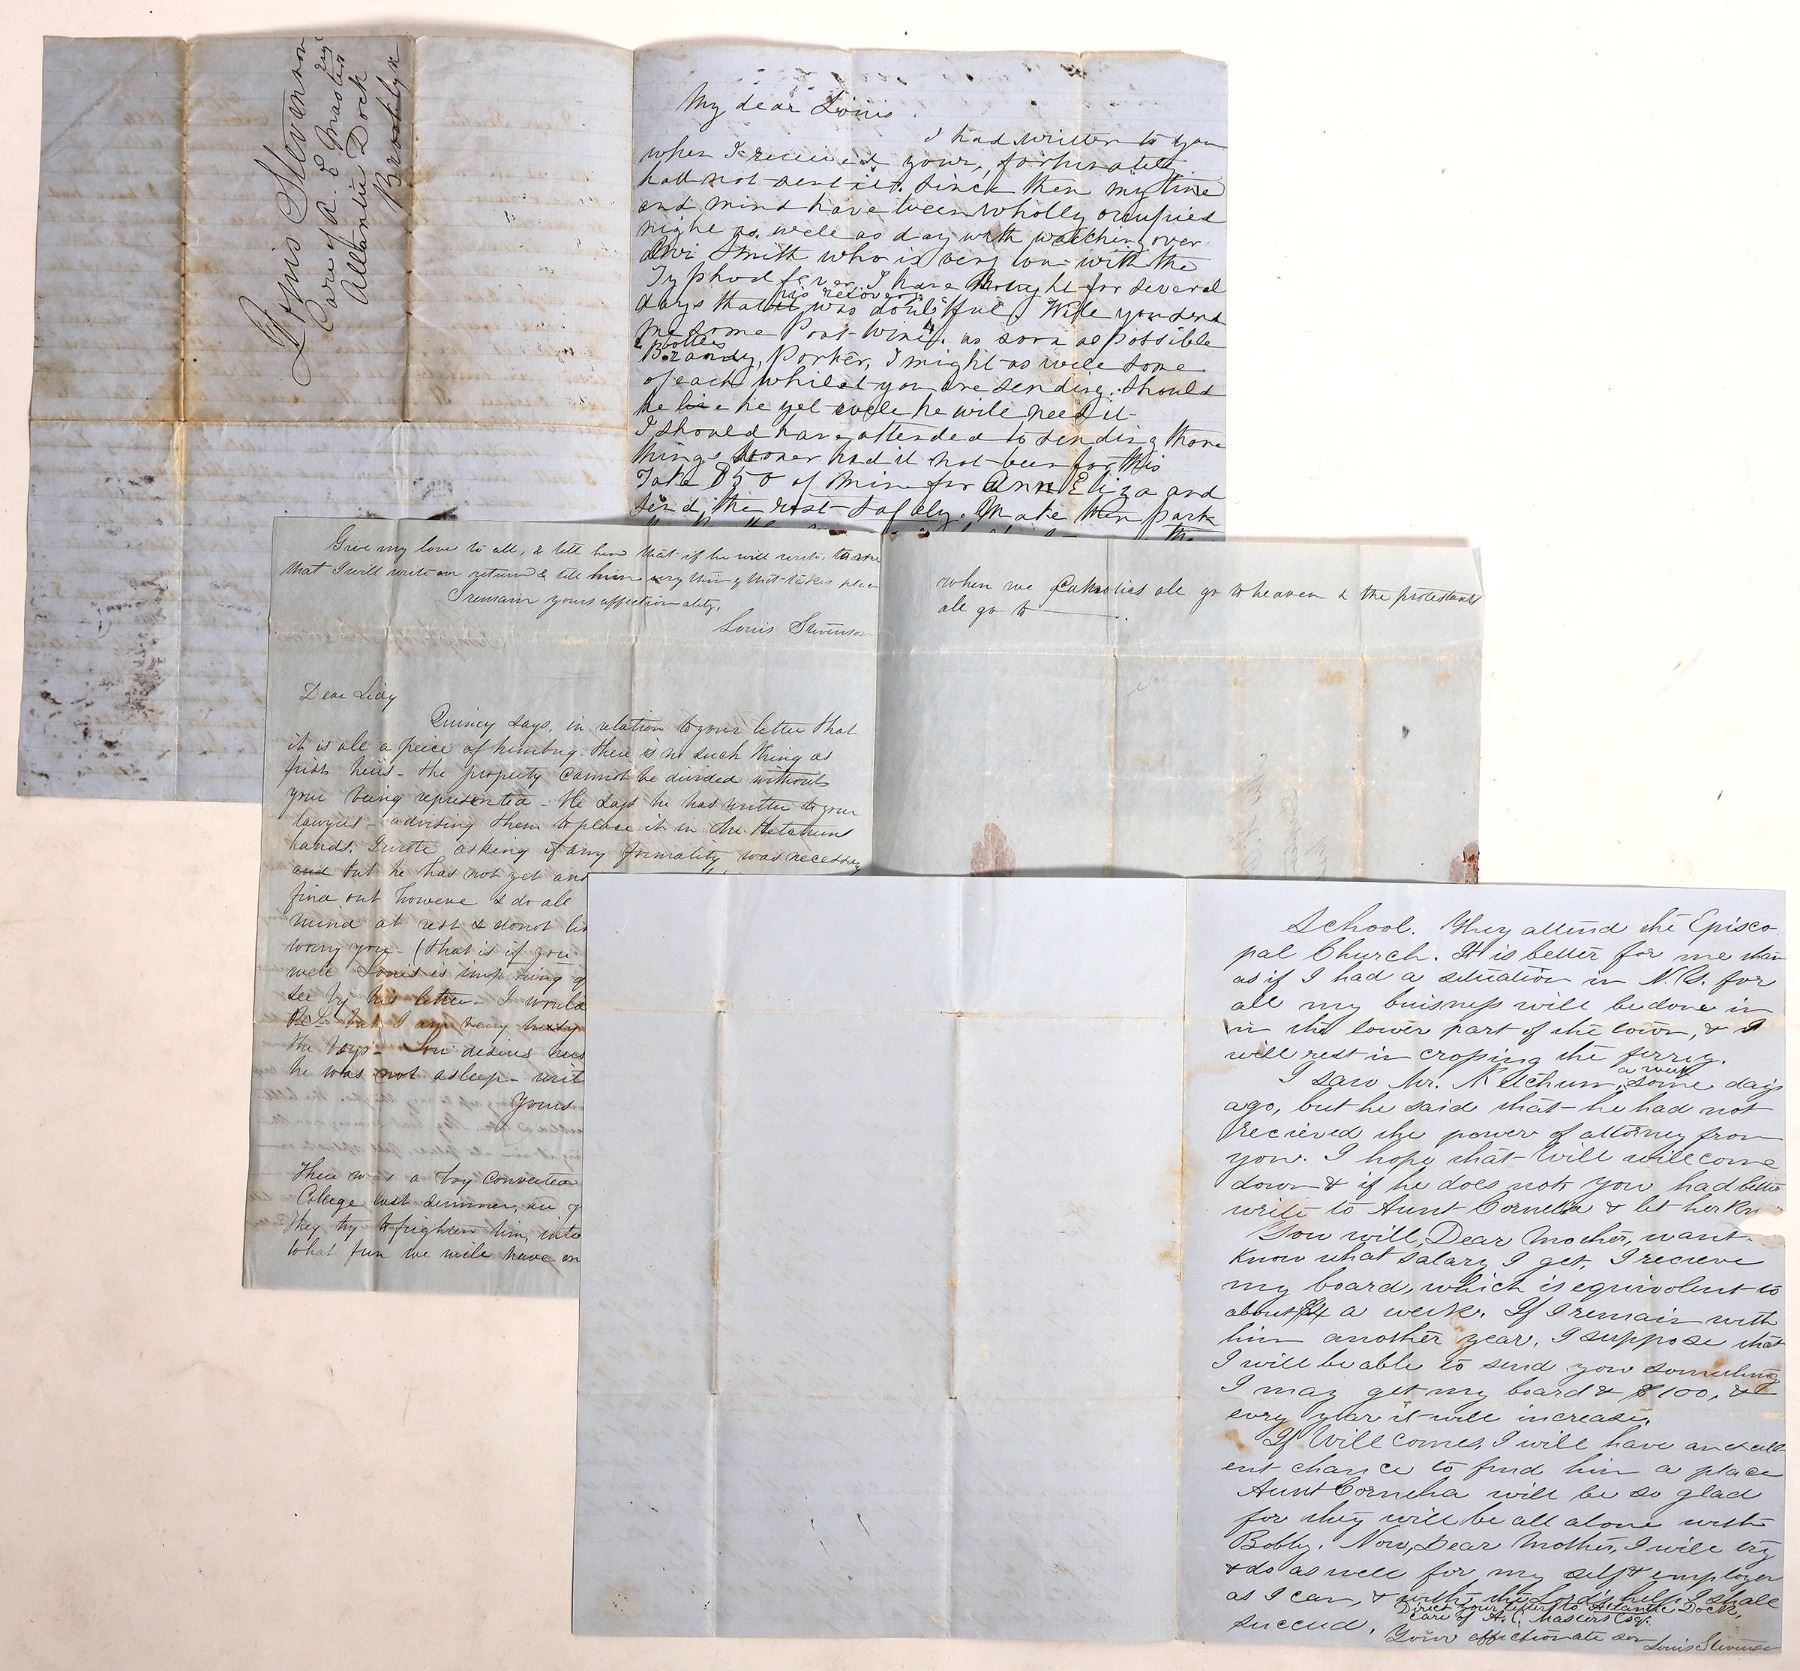 Louis Stevenson
Care of R. L. Masters Esq
Atlantic Dock
Brooklyn
My dear Louis
I had written to you
when I received your, fortunately
had not sent it. Since then my time
and mind have been wholly occupied
night as well as day with watching over
Smith who is very low with the
Typhod fever. I have thought for several
days that his recovery was doubtful. Will you send
me some Port wine, 4 bottles as soon as possible
Brandy, Porter, I might as well some
of each whilst you are sending. Should
he live he yet well he will need it
I should have attended to sending those
things sooner had it not been for this
Take $50 of mine for Ann Eliza and
send the rest safely. Make them park
Give my love to all, & tell him that if he will write to me
that I will write on return & tell him every thing that takes place
I remain yours affectionately,
Louis Stevenson
Dear Lidy
Quincy says, in relation to your letter that
it is all a peice of humbug. there is no such thing as
heirs - the property cannot be divided without
your being represented - He says he has written to your
lawyers - advising them to place it in the Ketchums
hands. I wrote asking if any formality was necessary
and but he has not yet ans
find out however I do all
mind at rest & do not
worry you - (that is if you
well Louis is improving
see by his letter - I would
but I am very
the boys - desires
he was not asleep - writ
Yours
There was a boy converted
College last summer,
they try to frighten him, into
what fun we will have
when we Catholics all go to heaven & the protestants
all go to ———.
School. They attend the Episco
pal Church. It is better for me than
as if I had a situation in N.Y. for
all my buisness will be done in
in the lower part of the town, & I
will rest in crossing the ferry.
I saw Mr. Ketchum, some days
ago, but he said that he had not
recieved the power of attorney from
you. I hope that Will will come
down & if he does not, you had better
write to Aunt Cornelia & let her kn
You will, Dear Mother, want
know what salary I get, I recieve
my board, which is equivolent to
about $4 a week. If I remain with
him another year, I suppose that
I will be able to send you something
I may get my board & $100, &
every year it will increase.
If Will comes, I will have an excell
ent chance to find him a place
Aunt Cornelia will be so glad
for they will be all alone with
Bobby. Now, Dear Mother, I will try
& do as well for my self & employer
as I can, & with the Lord's help I shall
succeed.
Direct your letter to Atlantic Dock,
Care of A. C. Masters Esq.
Your affictionate son
Louis Stevenson